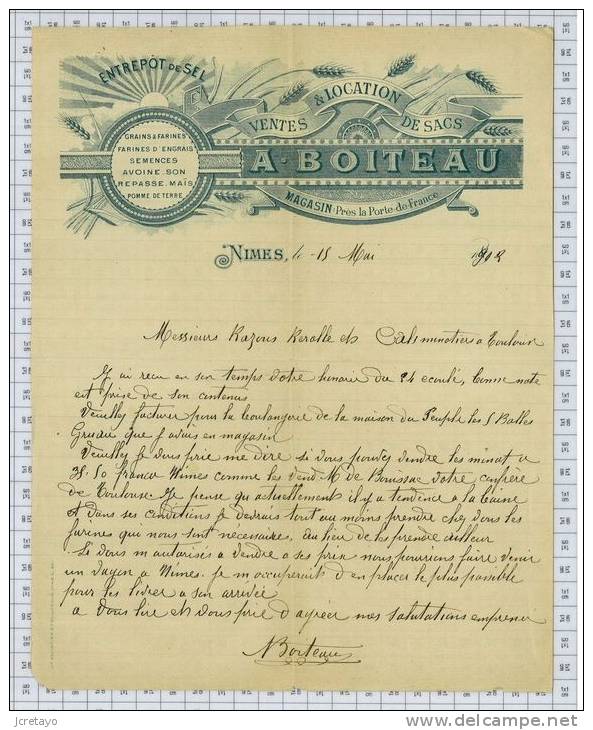 ENTREPÔT DE SEL
VENTES & LOCATION DE SACS
GRAINS & FARINES
FARINES D'ENGRAIS
SEMENCES
AVOINE. SON
REPASSE. MAÏS
POMME DE TERRE
A. BOITEAU
MAGASIN: Près la Porte-de-France
NIMES, le 15 Mai 1902
Messieurs et minotiers a Toulouse
J ai recu en son temps votre du 24 ecoulé, bonne note
est prise de son contenus
Veuillez facturer pour la boulangerie de la maison du Peuple les 5 Balles
que j avais en magasin
Veuillez je vous prie me dire si vous pouvez vendre les minot a
35.50 franco Nimes comme les vend M de votre confrère
de Toulouse. Je pense qu actuellement il y a tendence a la baisse
et dans ses conditions je devrais tout au moins prendre chez vous les
farines qui nous sont necessaires, au lieu de les prendre ailleur
Si vous m autorisés a vendre a ses prix nous pourions faire venir
un vagon a Nimes. je m occuperait d en placer le plus possible
pour les livrer a son arrivée
a vous lire et vous prie d agréer mes salutations empressées
A Boiteau
jcretayo
www.delcampe.net